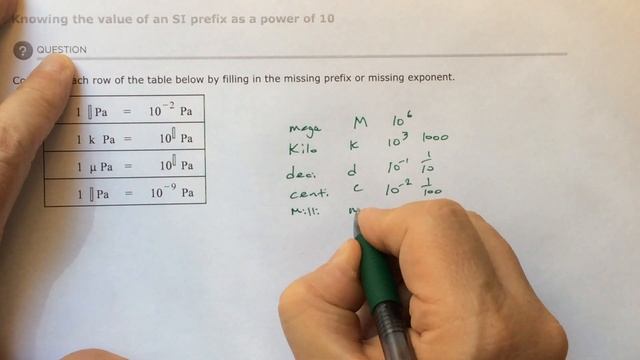 Knowing the value of an SI prefix as a power of 10
? QUESTION
Co ach row of the table below by filling in the missing prefix or missing exponent.
1 ▯Pa = 10⁻² Pa
1 k Pa = 10▯ Pa
1 μ Pa = 10▯ Pa
1 ▯Pa = 10⁻⁹ Pa
mega M 10⁶
Kilo K 10³ 1000
deci d 10⁻¹ 1/10
centi c 10⁻² 1/100
Milli m